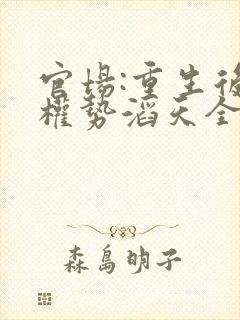 官場:重生後
權勢滔天全
森島明子